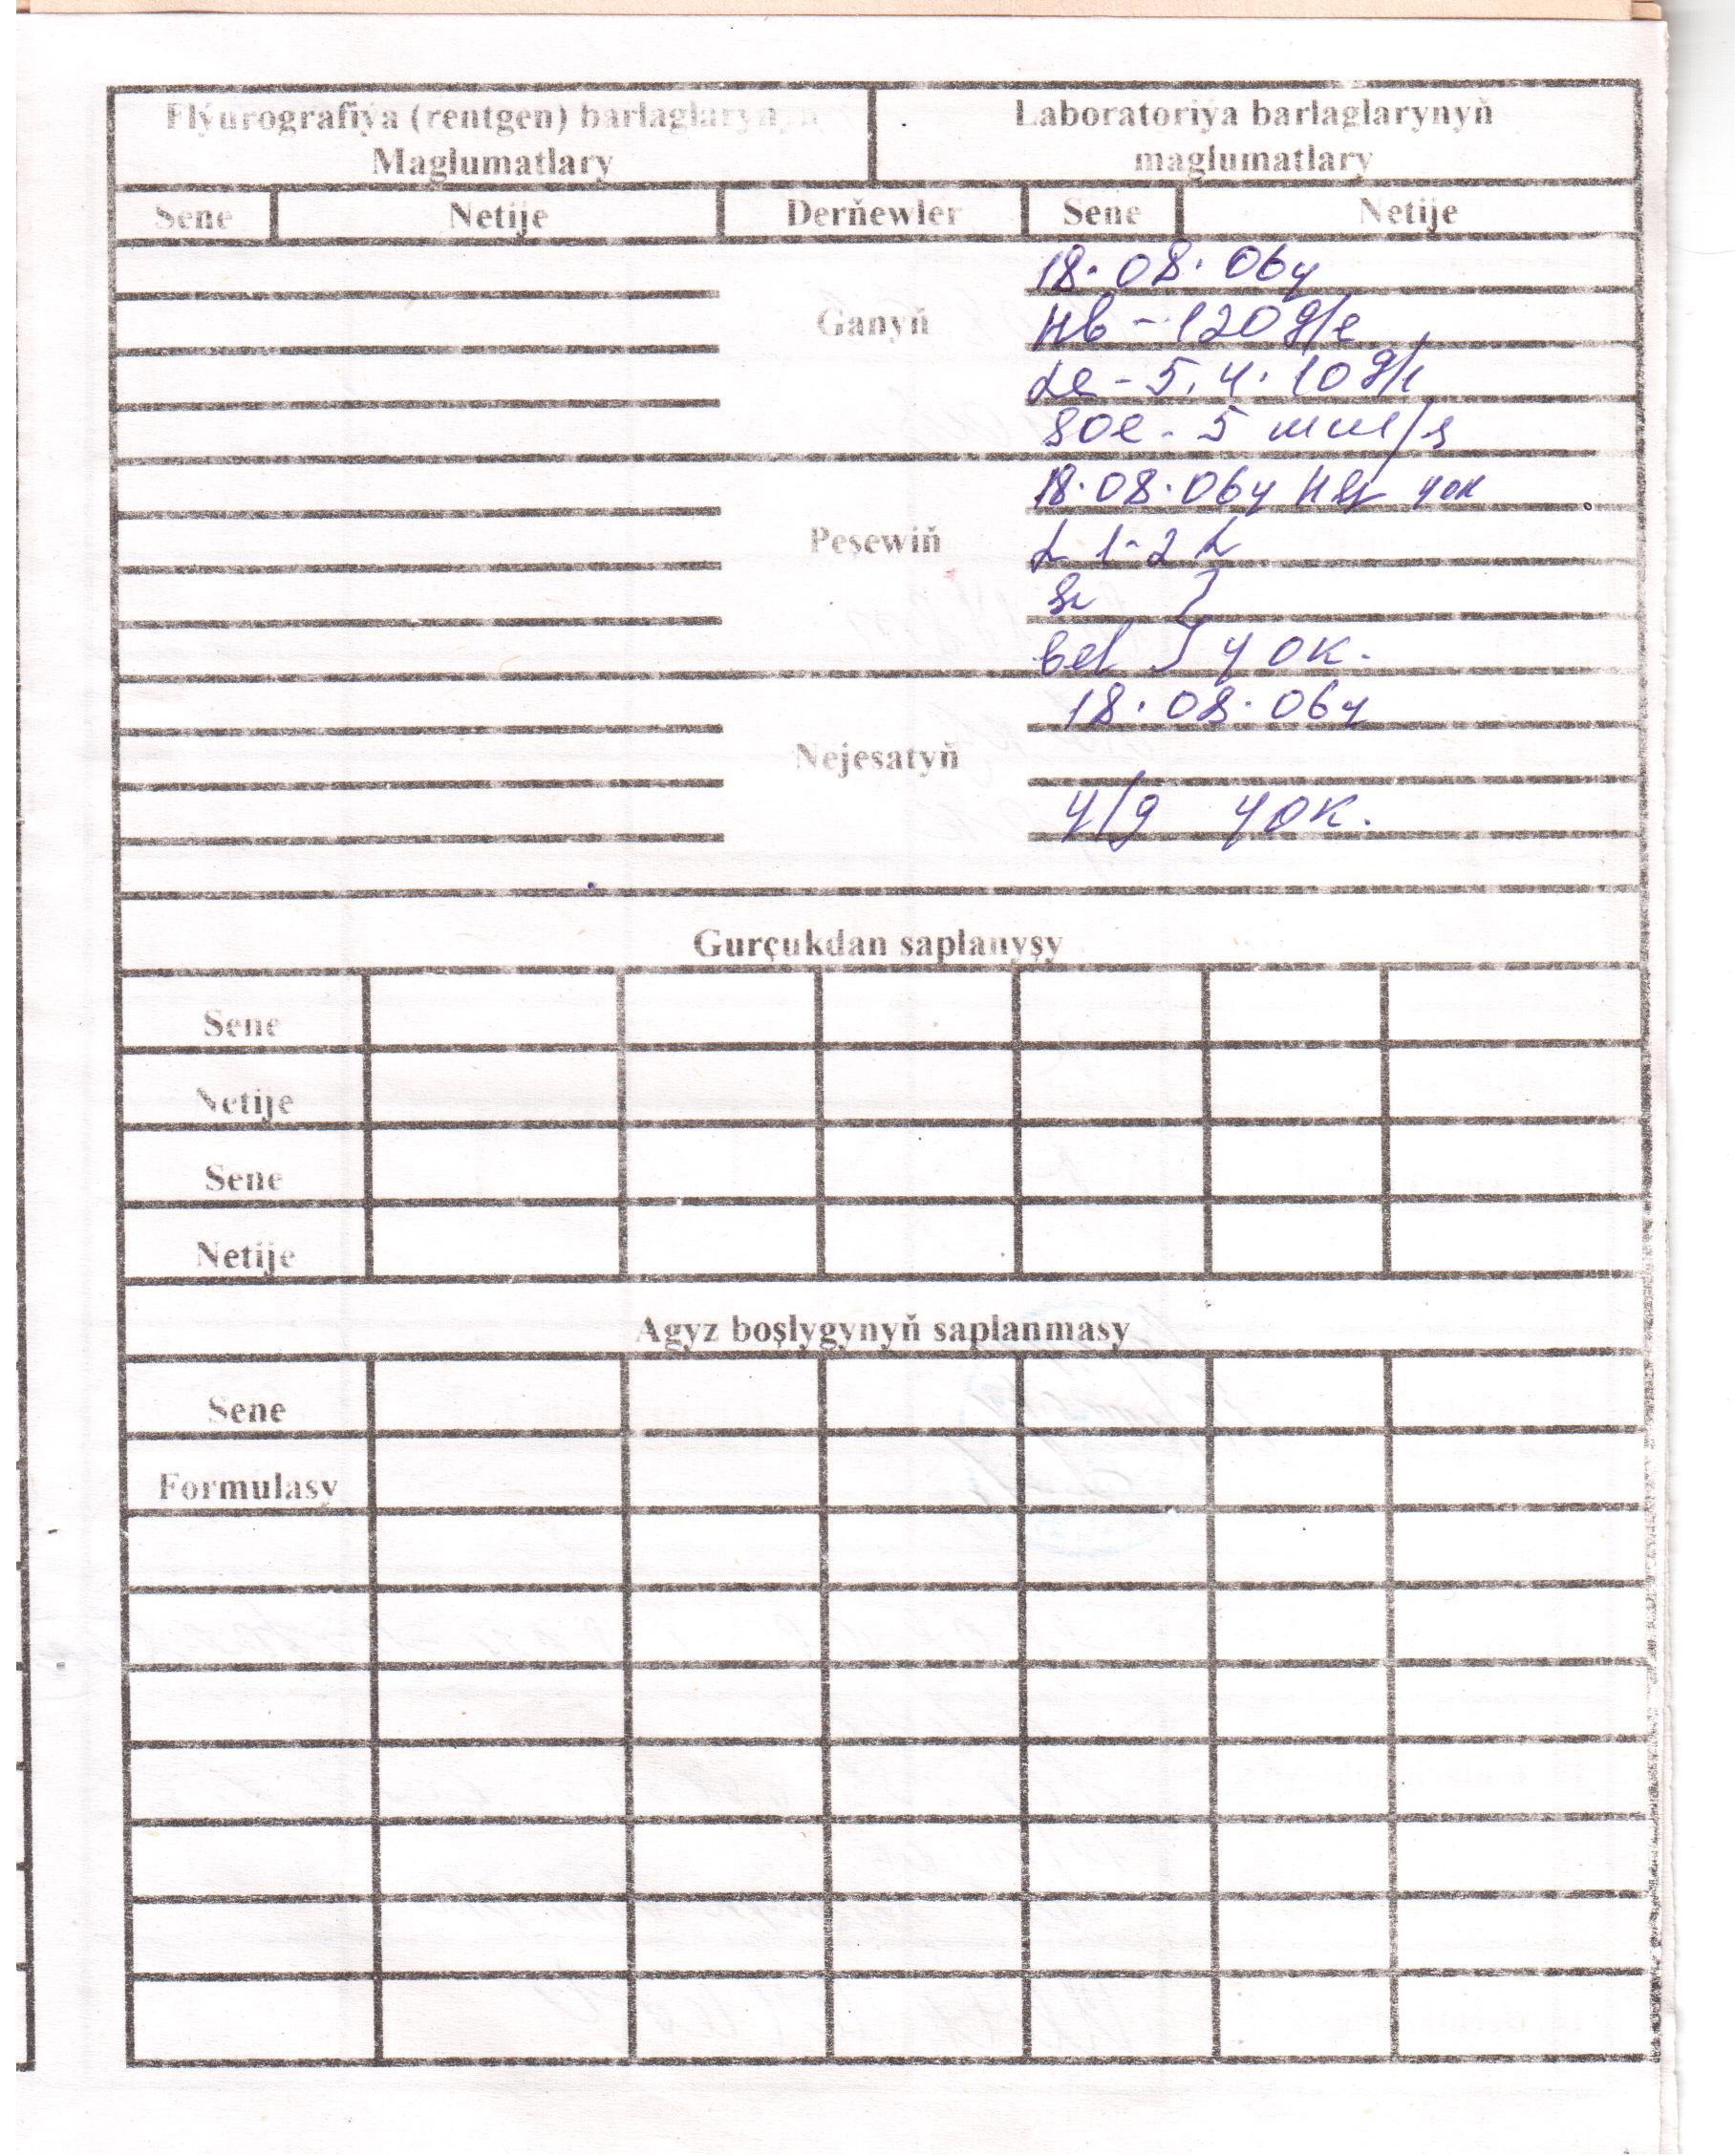 Flýurografiýa (rentgen) barlaglarynyň
Maglumatlary
Laboratoriýa barlaglarynyň
maglumatlary
Sene
Netije
Derňewler
Sene
Netije
Ganyň
18.08.06y
Hb - 120 g/l
Le - 5.4.10 g/l
SOE - 5 mm/s
Peşewiň
18.08.06y yok
L 1-2
bel } yok.
Nejesatyň
18.08.06y
y/g yok.
Gurçukdan saplanyşy
Sene
Netije
Sene
Netije
Agyz boşlygynyň saplanmasy
Sene
Formulasy